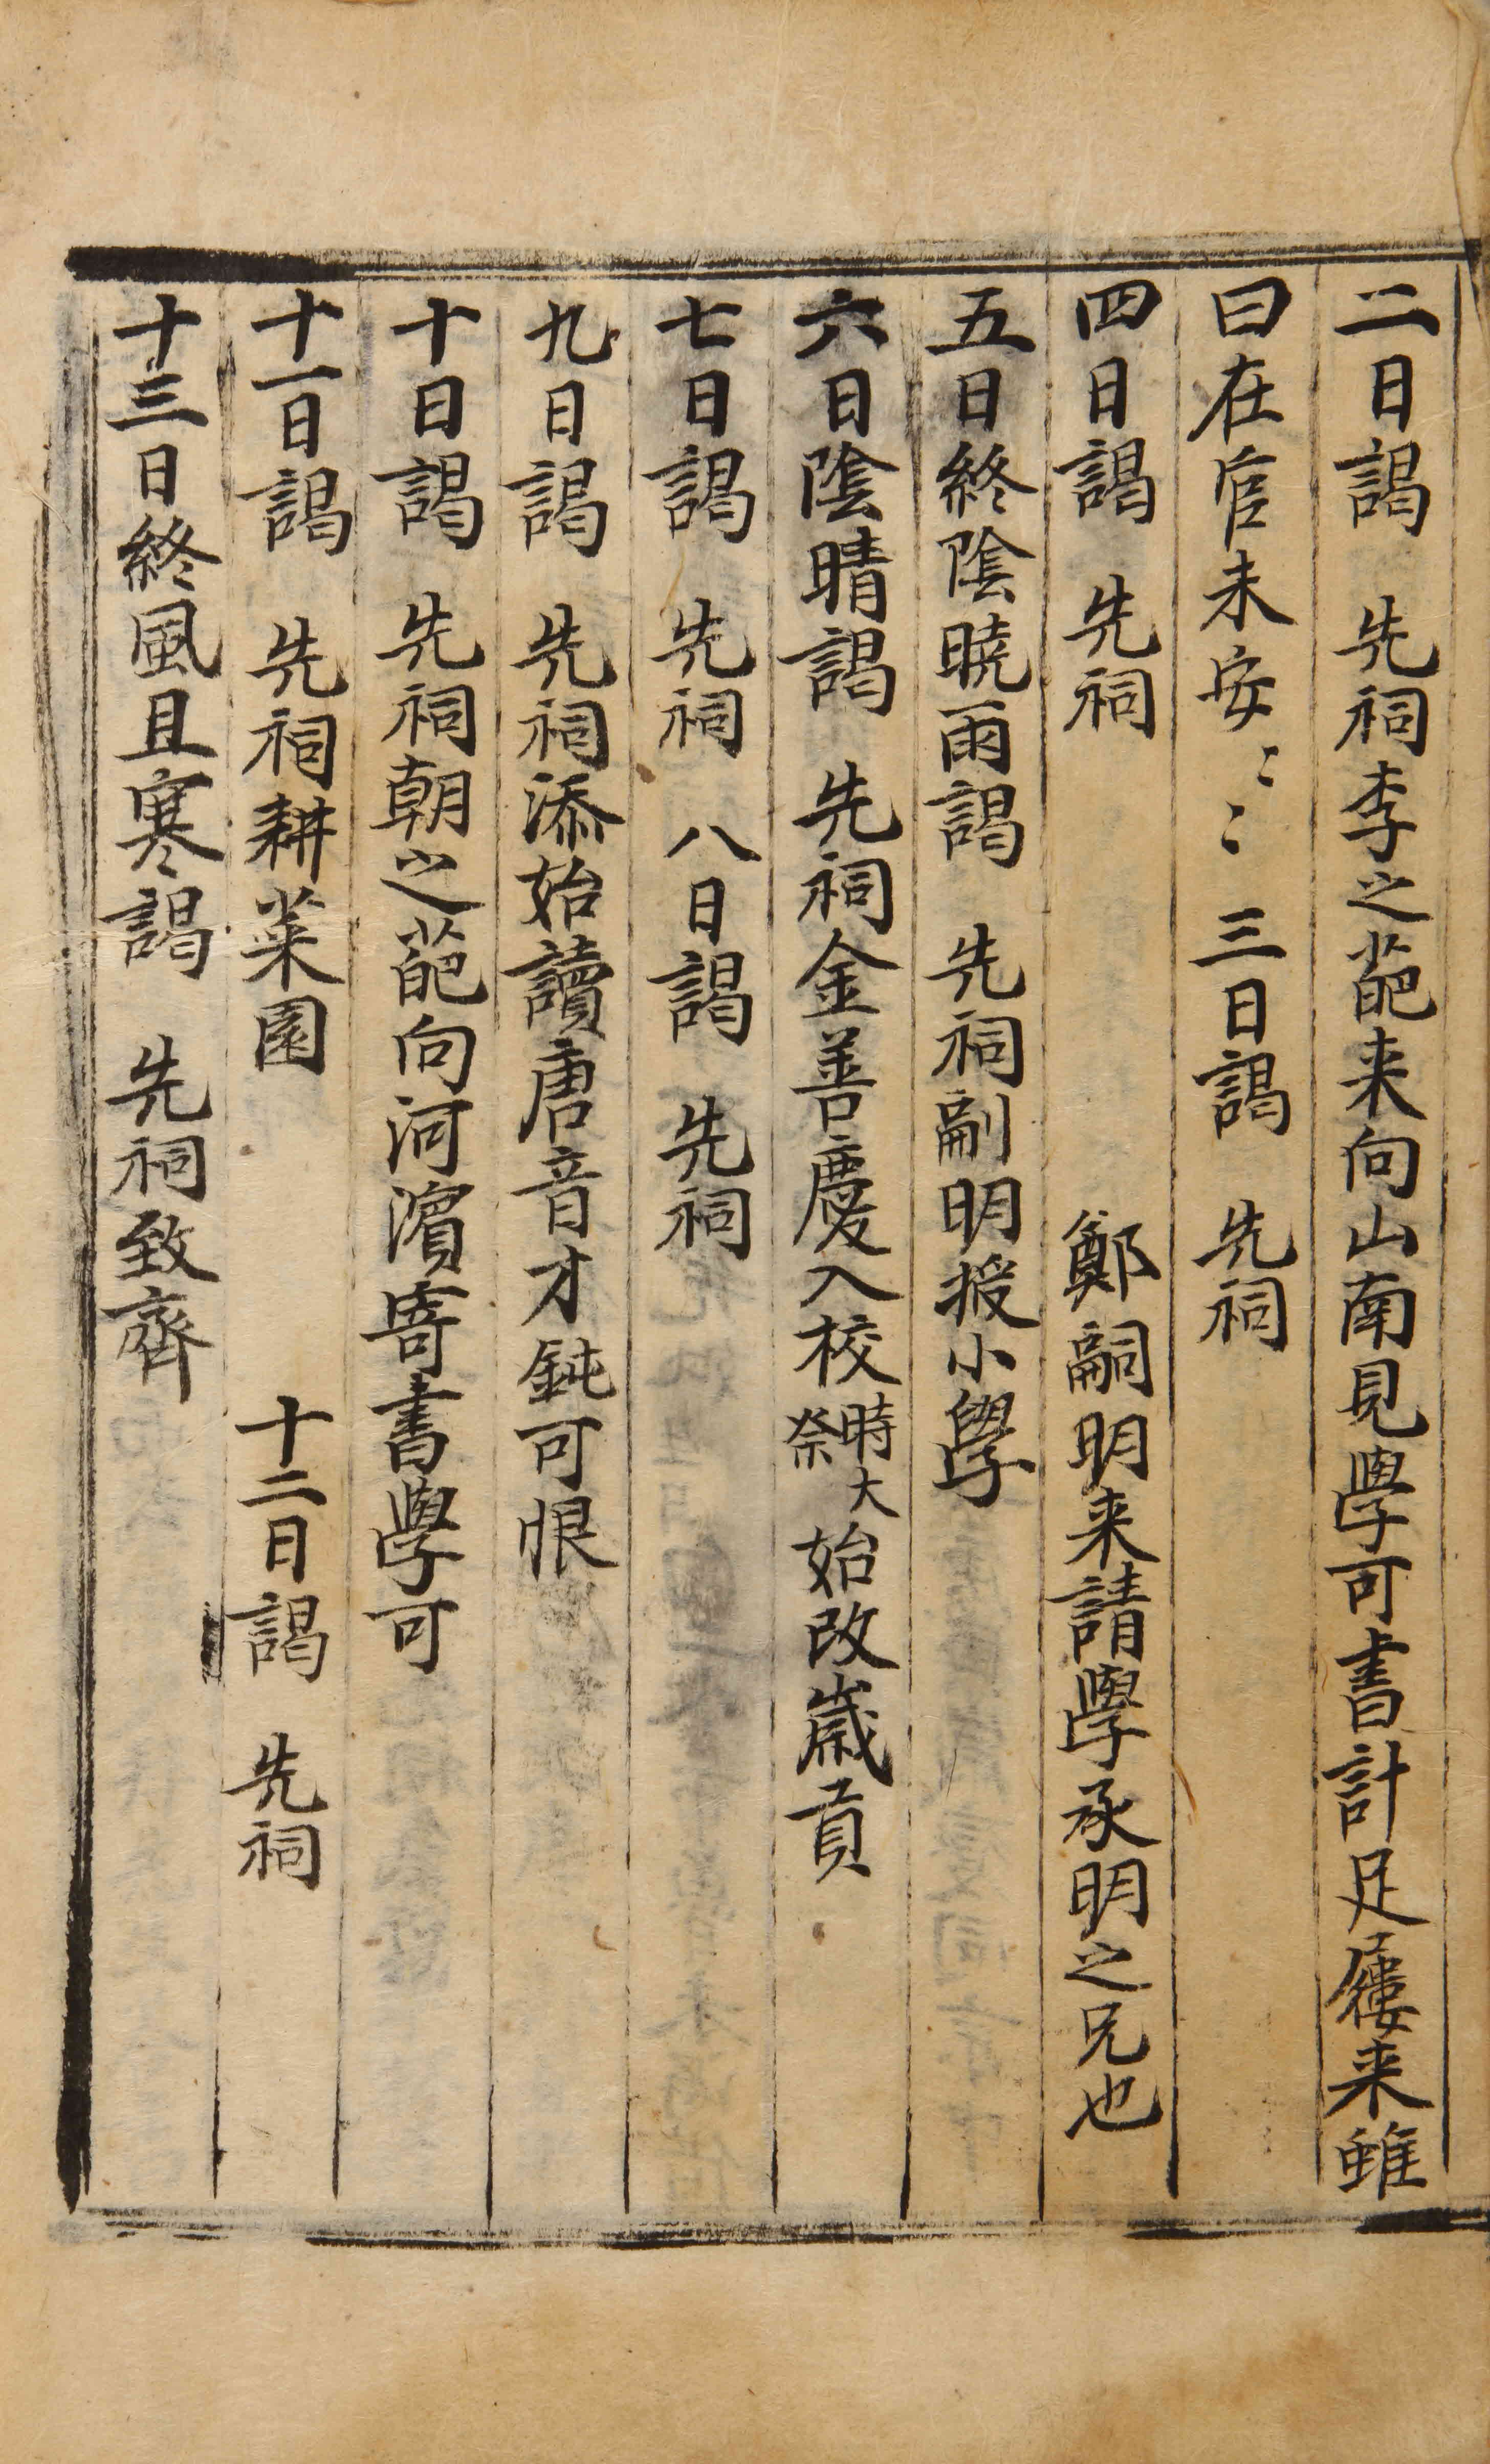 二日謁 先祠李之葩来向山南見學可書計足屨来雖
曰在官未安〻〻三日謁 先祠
四日謁 先祠 鄭嗣明来請學承明之兄也
五日終陰曉雨謁 先祠嗣明授小學
六日陰晴謁 先祠金善慶入校時大祭始改歲貢
七日謁 先祠 八日謁 先祠
九日謁 先祠添始讀唐音才鈍可恨
十日謁 先祠朝之葩向河濱寄書學可
十一日謁 先祠耕菜園 十二日謁 先祠
十三日終風且寒謁 先祠致齊